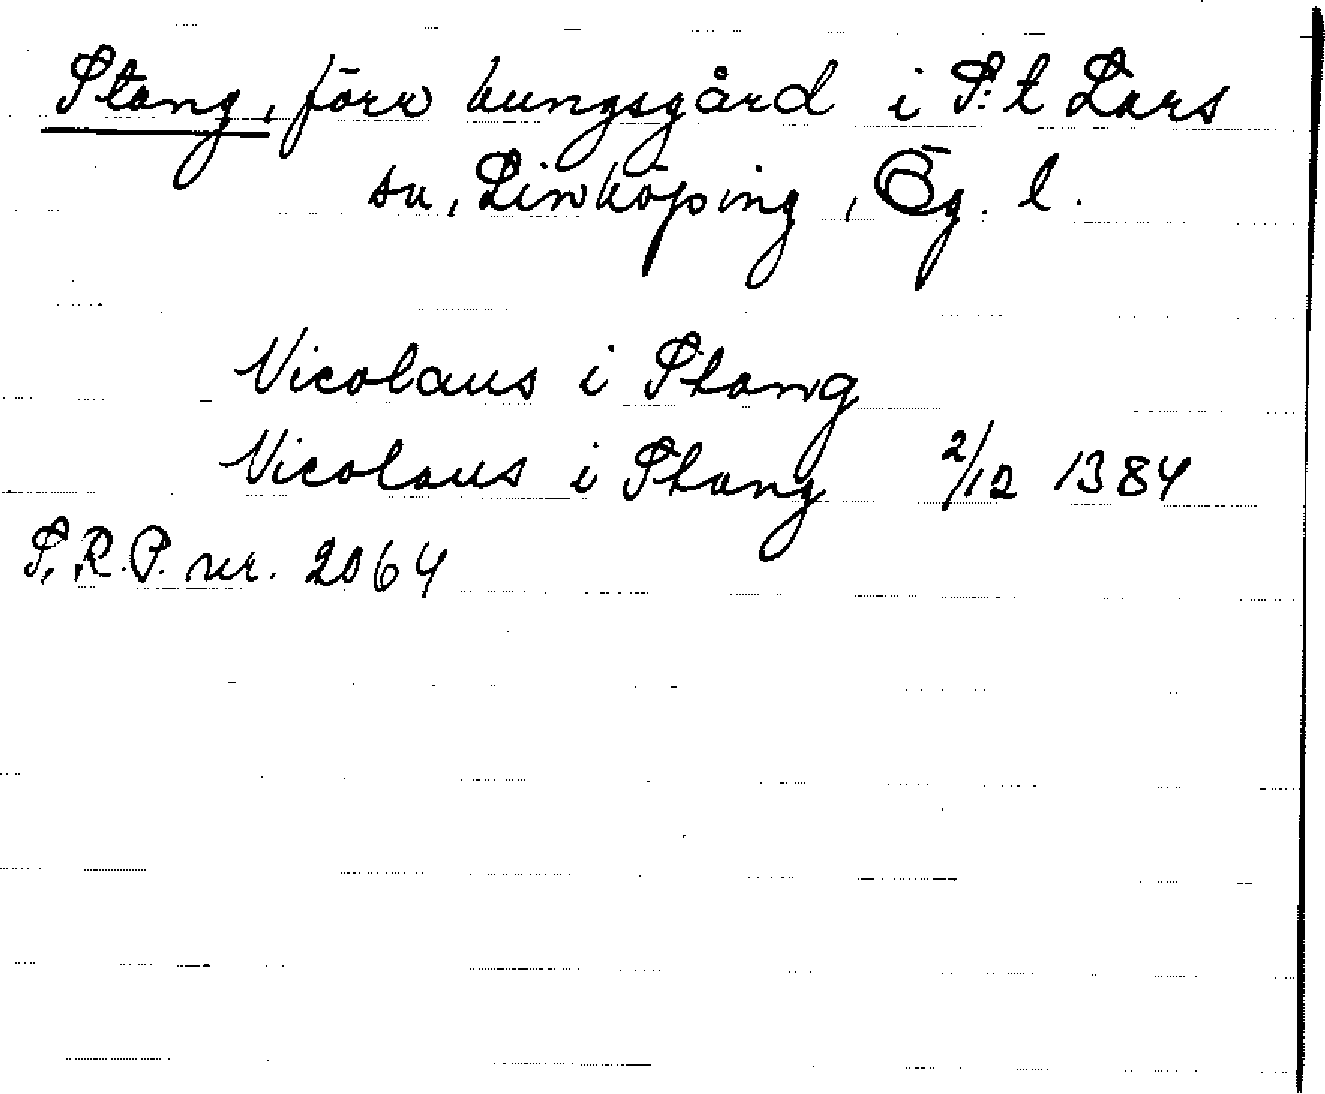 Stang, förr kungsgård i S:t Lars
sn, Linköping, Ög. l.
Nicolaus i Stang
Nicolaus i Stang 2/12 1384
S.R.P. nr. 2064